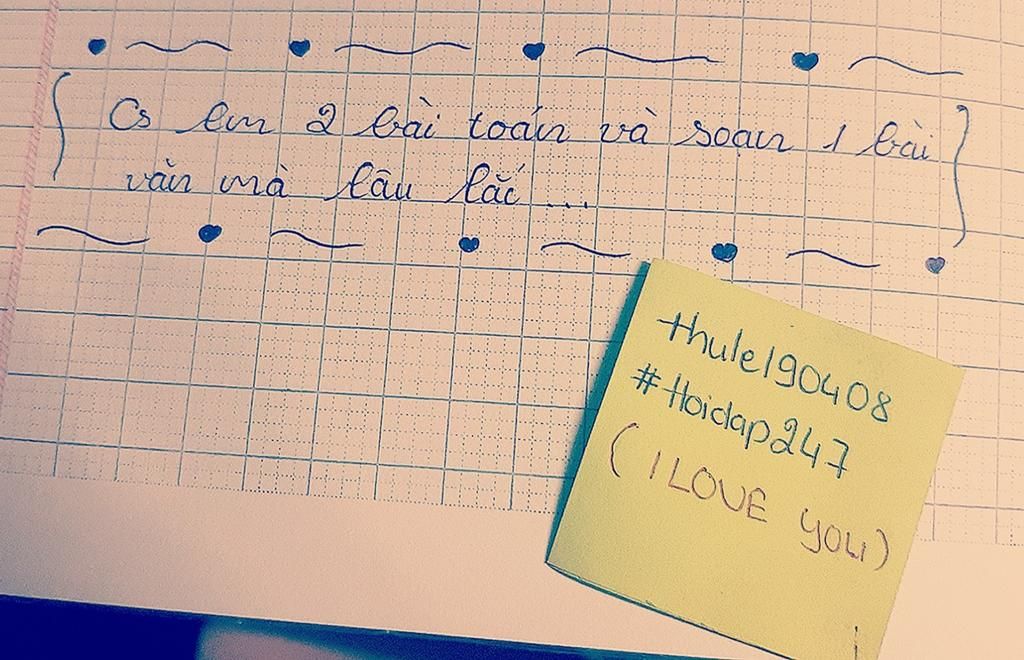 Cs em 2 bài toán và soạn 1 bài
văn mà lâu lắc ...
thule190408
#Hoidap247
(I LOVE YOU)